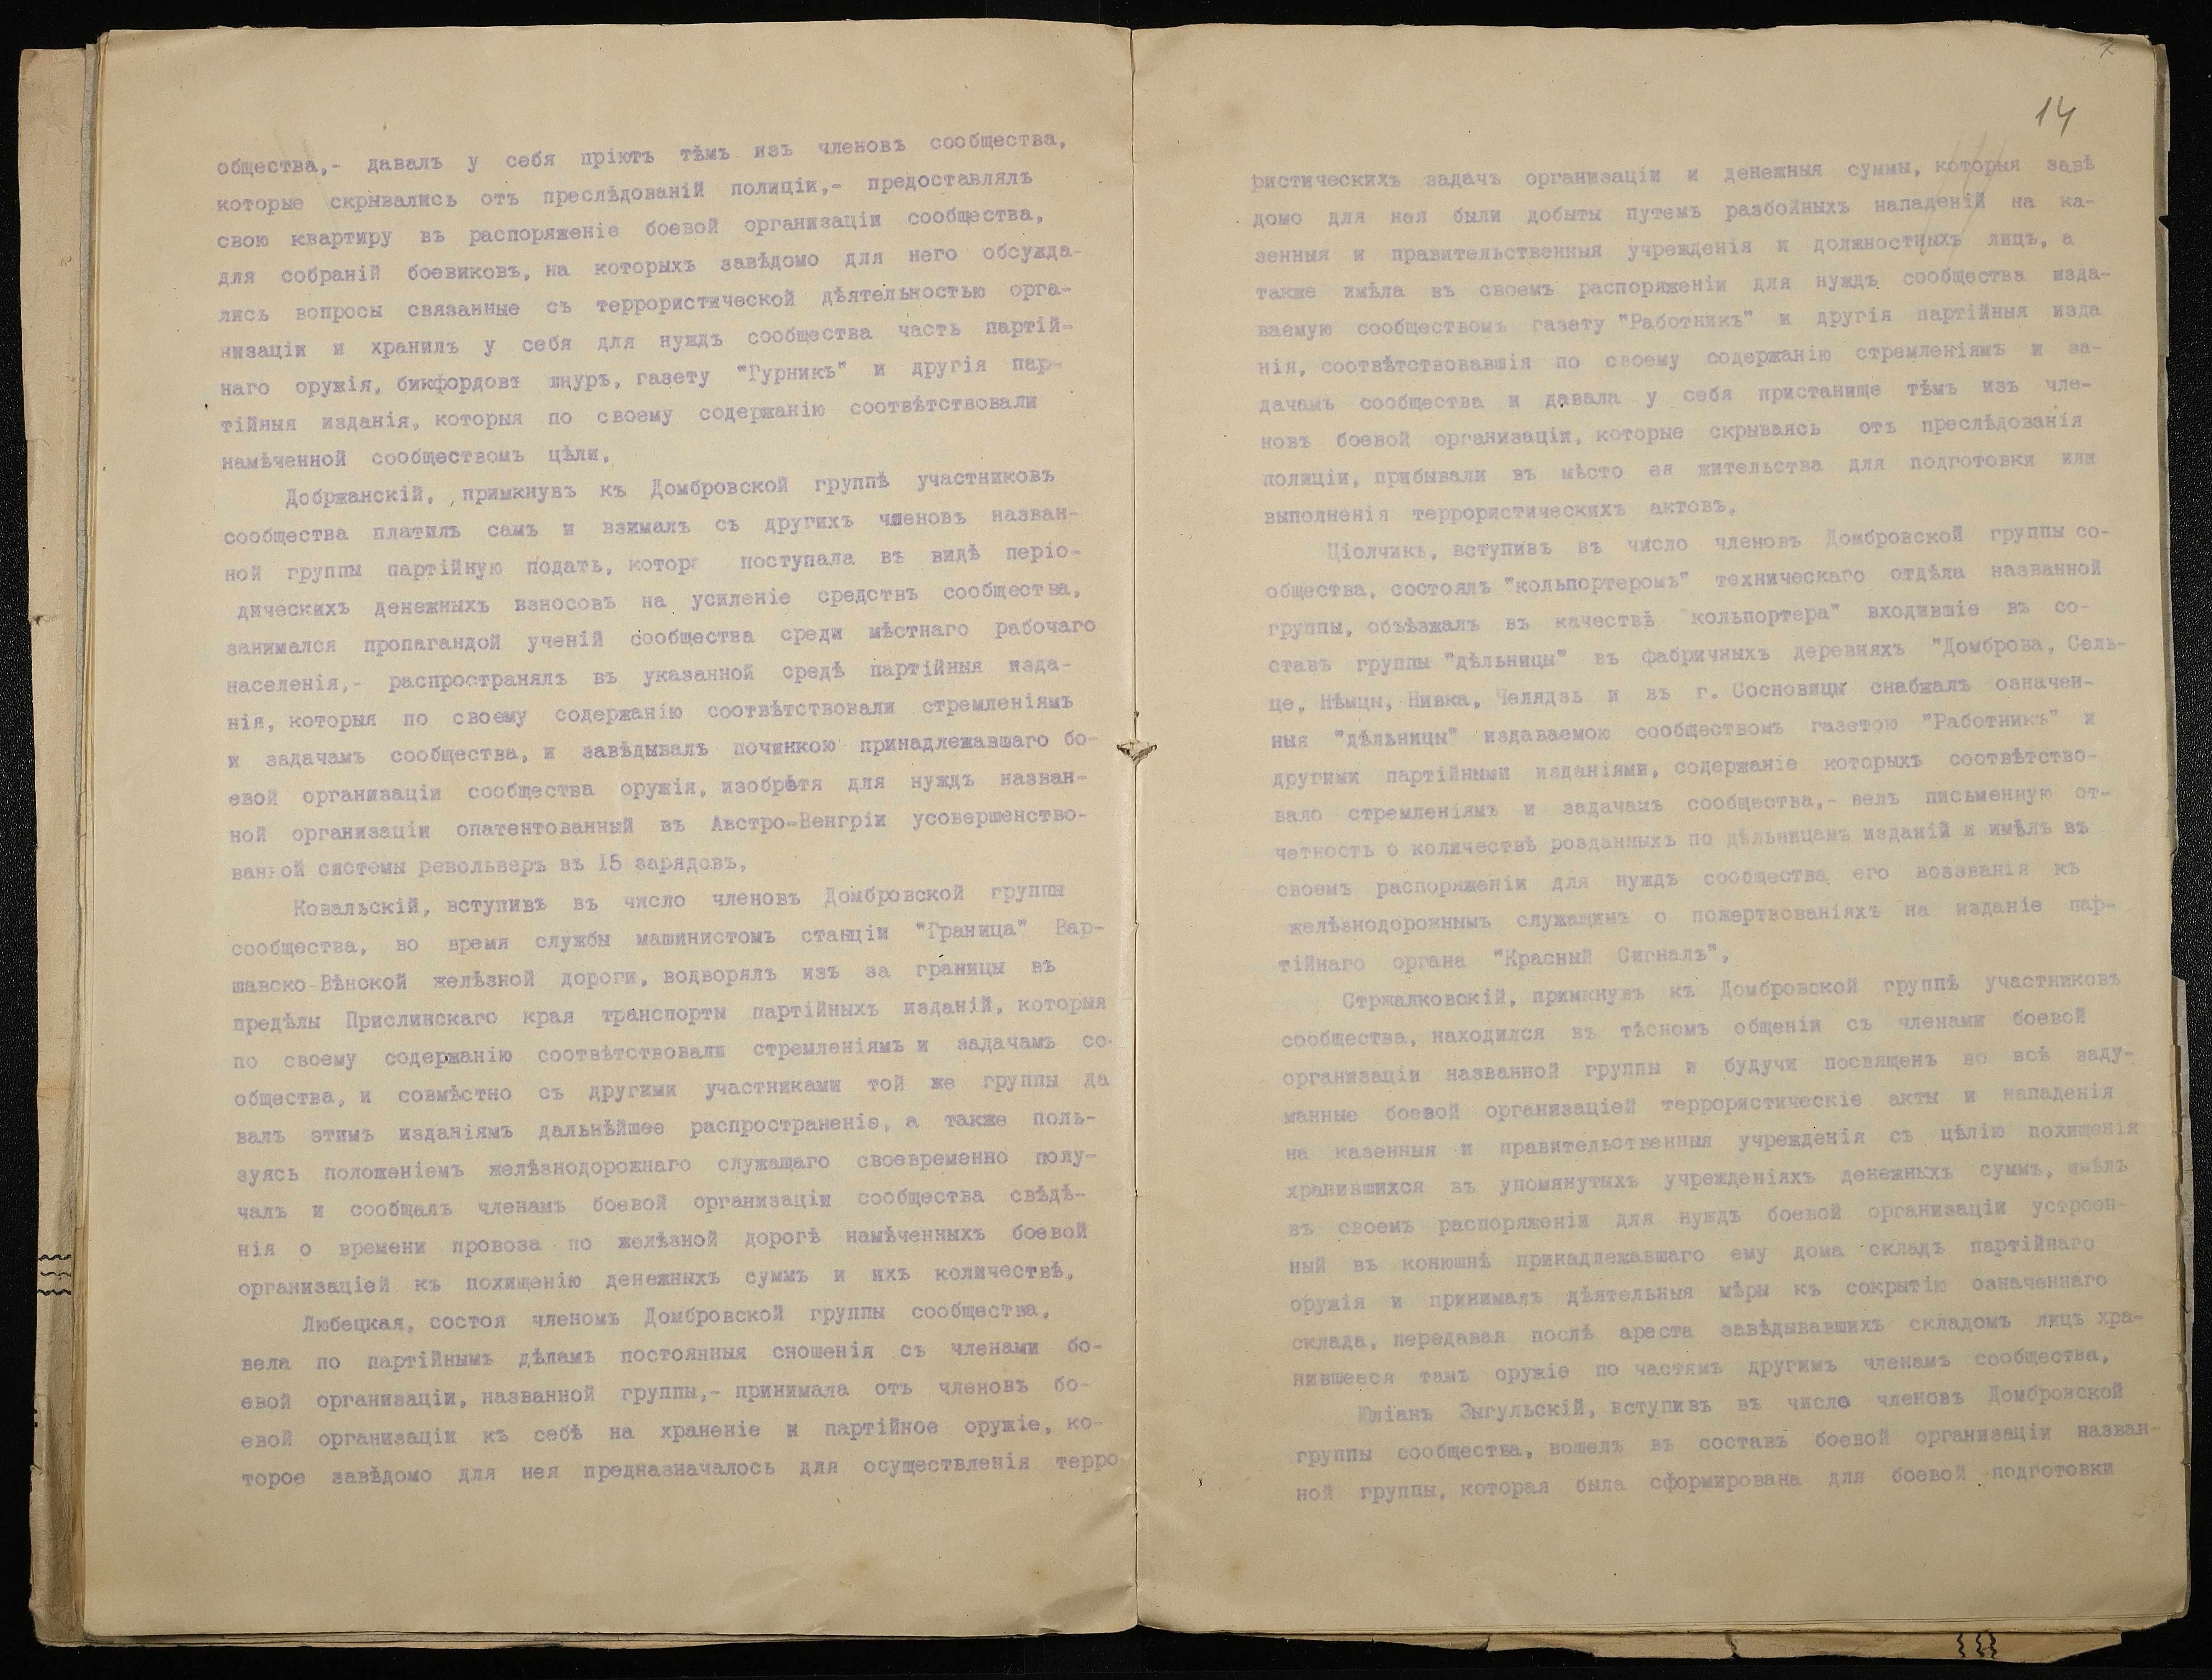 общества,- давалъ у себя пріютъ тѣмъ изъ членовъ сообщества,
которые скрывались отъ преслѣдованій полиціи,- предоставлялъ
свою квартиру въ распоряженіе боевой организаціи сообщества,
для собраній боевиковъ, на которыхъ завѣдомо для него обсужда-
лись вопросы связанные съ террористической дѣятельностью орга-
низаціи и хранилъ у себя для нуждъ сообщества часть партій-
наго оружія, бикфордовъ шнуръ, газету "Гурникъ" и другія пар-
тійныя изданія, которыя по своему содержанію соотвѣтствовали
намѣченной сообществомъ цѣли.
Добржанскій, примкнувъ къ Домбровской группѣ участниковъ
сообщества платилъ самъ и взималъ съ другихъ членовъ назван-
ной группы партійную подать, котора поступала въ видѣ періо-
дическихъ денежныхъ взносовъ на усиленіе средствъ сообщества,
занимался пропагандой ученій сообщества среди мѣстнаго рабочаго
населенія,- распространялъ въ указанной средѣ партійныя изда-
нія, которыя по своему содержанію соотвѣтствовали стремленіямъ
и задачамъ сообщества, и завѣдывалъ починкою принадлежавшаго бо-
евой организаціи сообщества оружія, изобрѣтя для нуждъ назван-
ной организаціи опатентованный въ Австро-Венгріи усовершенство-
ванной системы револьверъ въ 15 зарядовъ.
Ковальскій, вступивъ въ число членовъ Домбровской группы
сообщества, во время службы машинистомъ станціи "Граница" Вар-
шавско-Вѣнской желѣзной дороги, водворялъ изъ за границы въ
предѣлы Прислинскаго края транспорты партійныхъ изданій, которыя
по своему содержанію соотвѣтствовали стремленіямъ и задачамъ со-
общества, и совмѣстно съ другими участниками той же группы да
валъ этимъ изданіямъ дальнѣйшее распространеніе, а также поль-
зуясь положеніемъ желѣзнодорожнаго служащаго своевременно полу-
чалъ и сообщалъ членамъ боевой организаціи сообщества свѣдѣ-
нія о времени провоза по желѣзной дорогѣ намѣченныхъ боевой
организаціей къ похищенію денежныхъ суммъ и ихъ количествѣ.
Любецкая, состоя членомъ Домбровской группы сообщества,
вела по партійнымъ дѣламъ постоянныя сношенія съ членами бо-
евой организаціи, названной группы,- принимала отъ членовъ бо-
евой организаціи къ себѣ на храненіе и партійное оружіе, ко-
торое завѣдомо для нея предназначалось для осуществленія терро-
14
ристическихъ задачъ организаціи и денежныя суммы, которыя завѣ
домо для нея были добыты путемъ разбойныхъ нападеній на ка-
зенныя и правительственныя учрежденія и должностныхъ лицъ, а
также имѣла въ своемъ распоряженіи для нуждъ сообщества изда-
ваемую сообществомъ газету "Работникъ" и другія партійныя изда
нія, соотвѣтствовавшія по своему содержанію стремленіямъ и за-
дачамъ сообщества и давала у себя пристанище тѣмъ изъ чле-
новъ боевой организаціи, которые скрываясь отъ преслѣдованія
полиціи, прибывали въ мѣсто ея жительства для подготовки или
выполненія террористическихъ актовъ.
Ціолчикъ, вступивъ въ число членовъ Домбровской группы со-
общества, состоялъ "кольпортеромъ" техническаго отдѣла названной
группы, объѣзжалъ въ качествѣ "кольпортера" входившіе въ со-
ставъ группы "дѣльницы" въ фабричныхъ деревняхъ "Домброва, Сель-
це, Нѣмцы, Нивка, Челядзь и въ г. Сосновицы снабжалъ означен-
ныя "дѣльницы" издаваемою сообществомъ газетою "Работникъ" и
другими партійными изданіями, содержаніе которыхъ соотвѣтство-
вало стремленіямъ и задачамъ сообщества,- велъ письменную от-
четность о количествѣ розданныхъ по дѣльницамъ изданій и имѣлъ въ
своемъ распоряженіи для нуждъ сообщества его воззванія къ
желѣзнодорожнымъ служащимъ о пожертвованіяхъ на изданіе пар-
тійнаго органа "Красный Сигналъ".
Стржалковскій, примкнувъ къ Домбровской группѣ участниковъ
сообщества, находился въ тѣсномъ общеніи съ членами боевой
организаціи названной группы и будучи посвященъ во всѣ заду-
манные боевой организаціей террористическіе акты и нападенія
на казенныя и правительственныя учрежденія съ цѣлію похищенія
хранившихся въ упомянутыхъ учрежденіяхъ денежныхъ суммъ, имѣлъ
въ своемъ распоряженіи для нуждъ боевой организаціи устроен-
ный въ конюшнѣ принадлежавшаго ему дома складъ партійнаго
оружія и принималъ дѣятельныя мѣры къ сокрытію означеннаго
склада, передавая послѣ ареста завѣдывавшихъ складомъ лицъ хра-
нившееся тамъ оружіе по частямъ другимъ членамъ сообщества.
Юліанъ Зыгульскій, вступивъ въ число членовъ Домбровской
группы сообщества, вошелъ въ составъ боевой организаціи назван-
ной группы, которая была сформирована для боевой подготовки